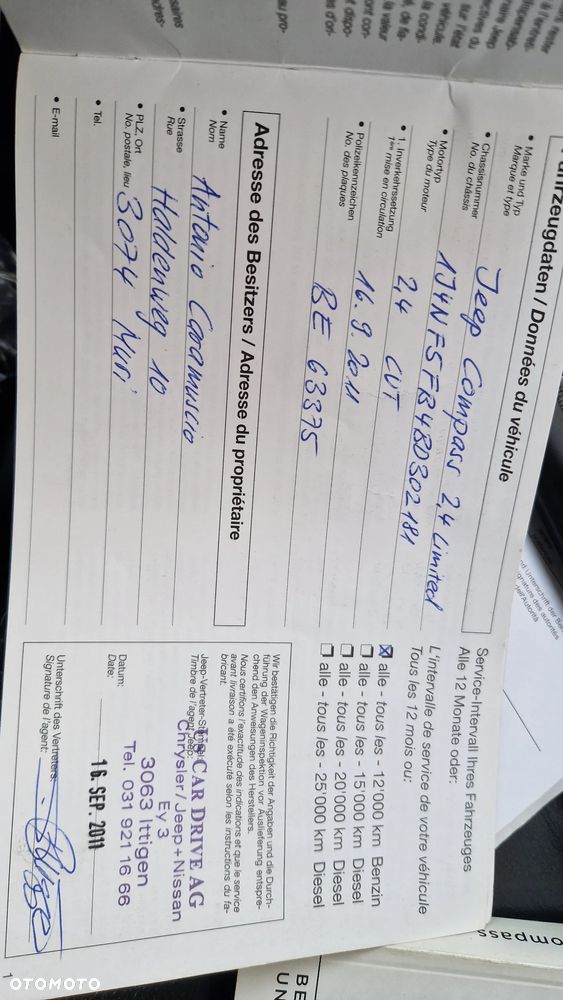 Fahrzeugdaten / Données du véhicule
• Marke und Typ
Marque et type
Jeep Compass 2,4 Limited
• Chassisnummer
No. du châssis
1J4NF5FB4BD302181
• Motortyp
Type du moteur
2,4 CVT
• 1. Inverkehrssetzung
1ère mise en circulation
16. 9. 2011
• Polizeikennzeichen
No. des plaques
BE 63375
Adresse des Besitzers / Adresse du propriétaire
• Name
Nom
Antonio Caramuscio
• Strasse
Rue
Haldenweg 10
• PLZ, Ort
No. postale, lieu
3074 Muri
• Tel.
• E-mail
Service-Intervall Ihres Fahrzeuges
Alle 12 Monate oder:
L'intervalle de service de votre véhicule
Tous les 12 mois ou:
☒ alle - tous les - 12'000 km Benzin
☐ alle - tous les - 15'000 km Diesel
☐ alle - tous les - 20'000 km Diesel
☐ alle - tous les - 25'000 km Diesel
Wir bestätigen die Richtigkeit der Angaben und die Durch-
führung der Wageninspektion vor Auslieferung entspre-
chend den Anweisungen des Herstellers.
Nous certifions l'exactitude des indications et que le service
avant livraison a été exécuté selon les instructions du fa-
bricant.
Jeep-Vertreter-Stempel:
Timbre de l'agent Jeep:
CAR DRIVE AG
Chrysler/Jeep+Nissan
Ey 3
3063 Ittigen
Tel. 031 921 16 66
Datum:
Date:
16. SEP. 2011
Unterschrift des Vertreters:
Signature de l'agent:
1
ompass
OTOMOTO